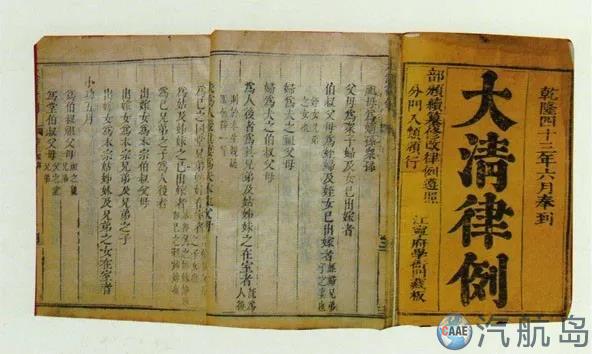 乾隆四十三年六月奉到
大清律例
部頒續纂修改律例遵照
分門入類頒行
江寧府學衙門藏板
祖母為嫡孫眾孫
父母為眾子婦及女已出嫁者
伯叔父母為姪婦及姪女已出嫁者
婦為夫之祖父母
婦為夫之伯叔父母
為人後者為其兄弟及姑姊妹之在室者
為己之同堂兄弟
為姑及姊妹之已出嫁者
為己兄弟之子為人後者
出嫁女為本宗兄弟及兄弟之子
出嫁女為本宗姑姊妹及兄弟之女在室者
小功五月
為伯叔祖父母
為堂伯叔父母
CAAE 汽航岛